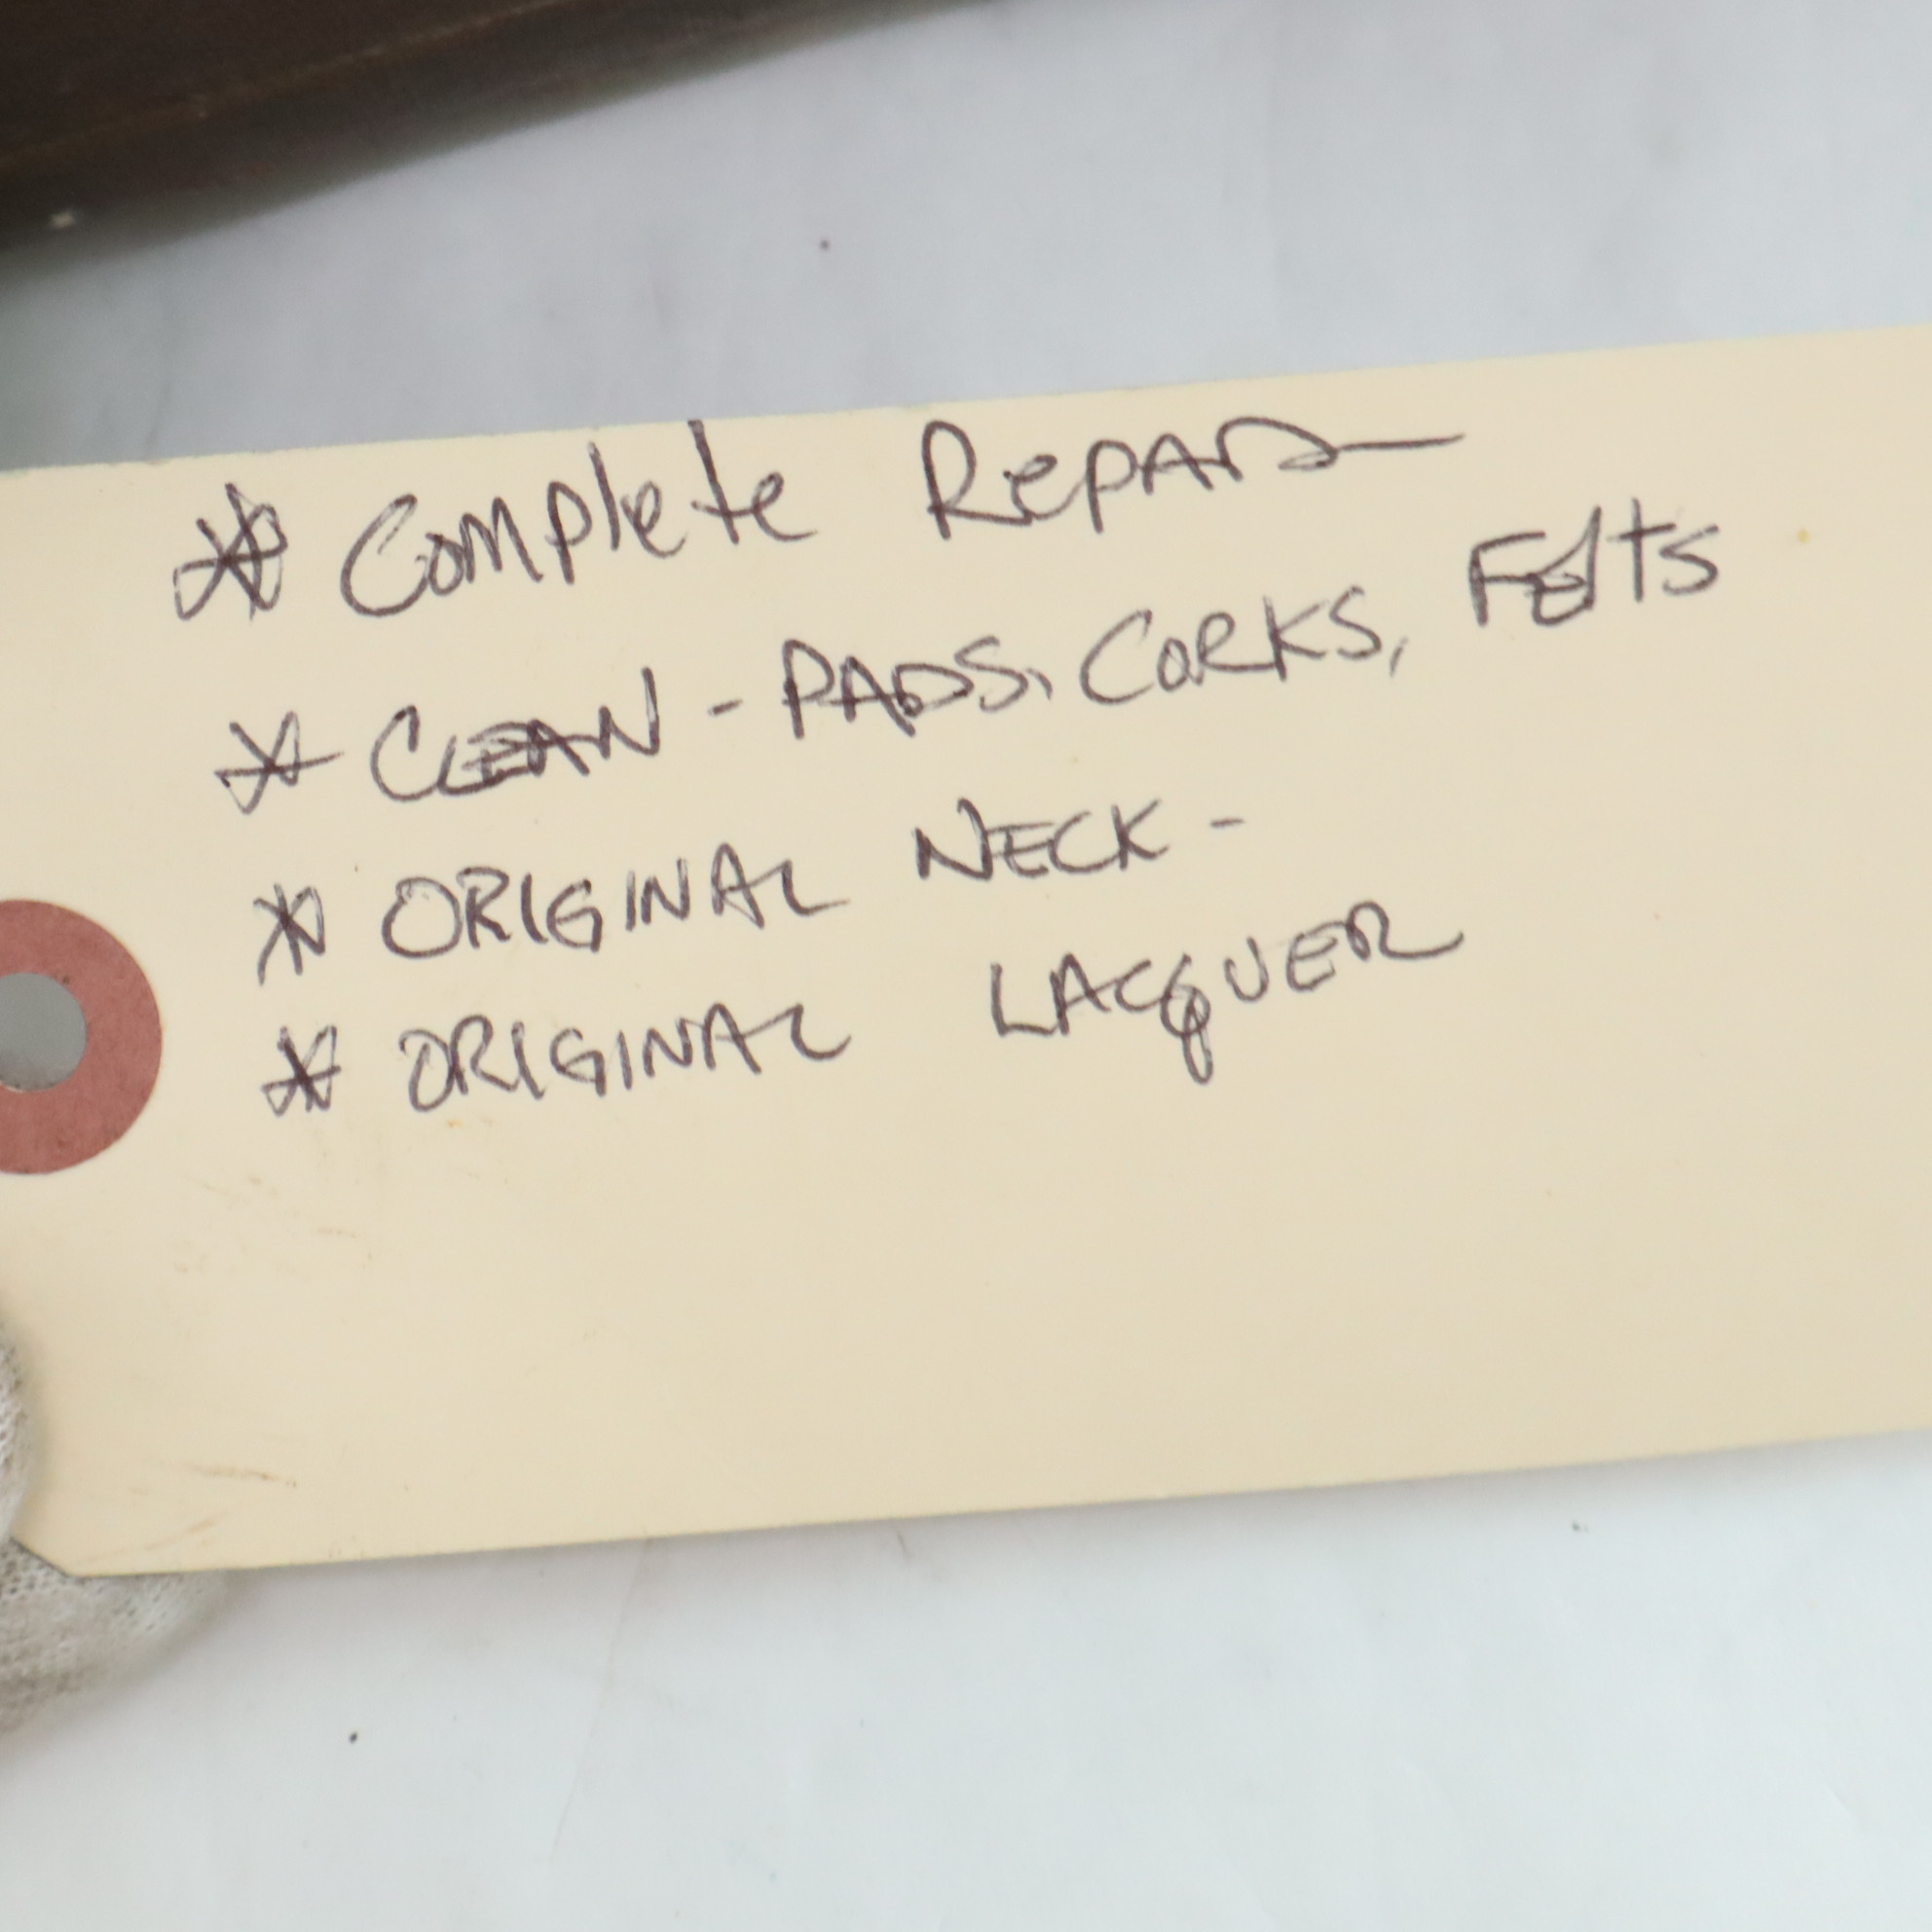 * Complete Repad
* CLEAN - PADS, CORKS, Felts
* ORIGINAL NECK -
* ORIGINAL LACQUER